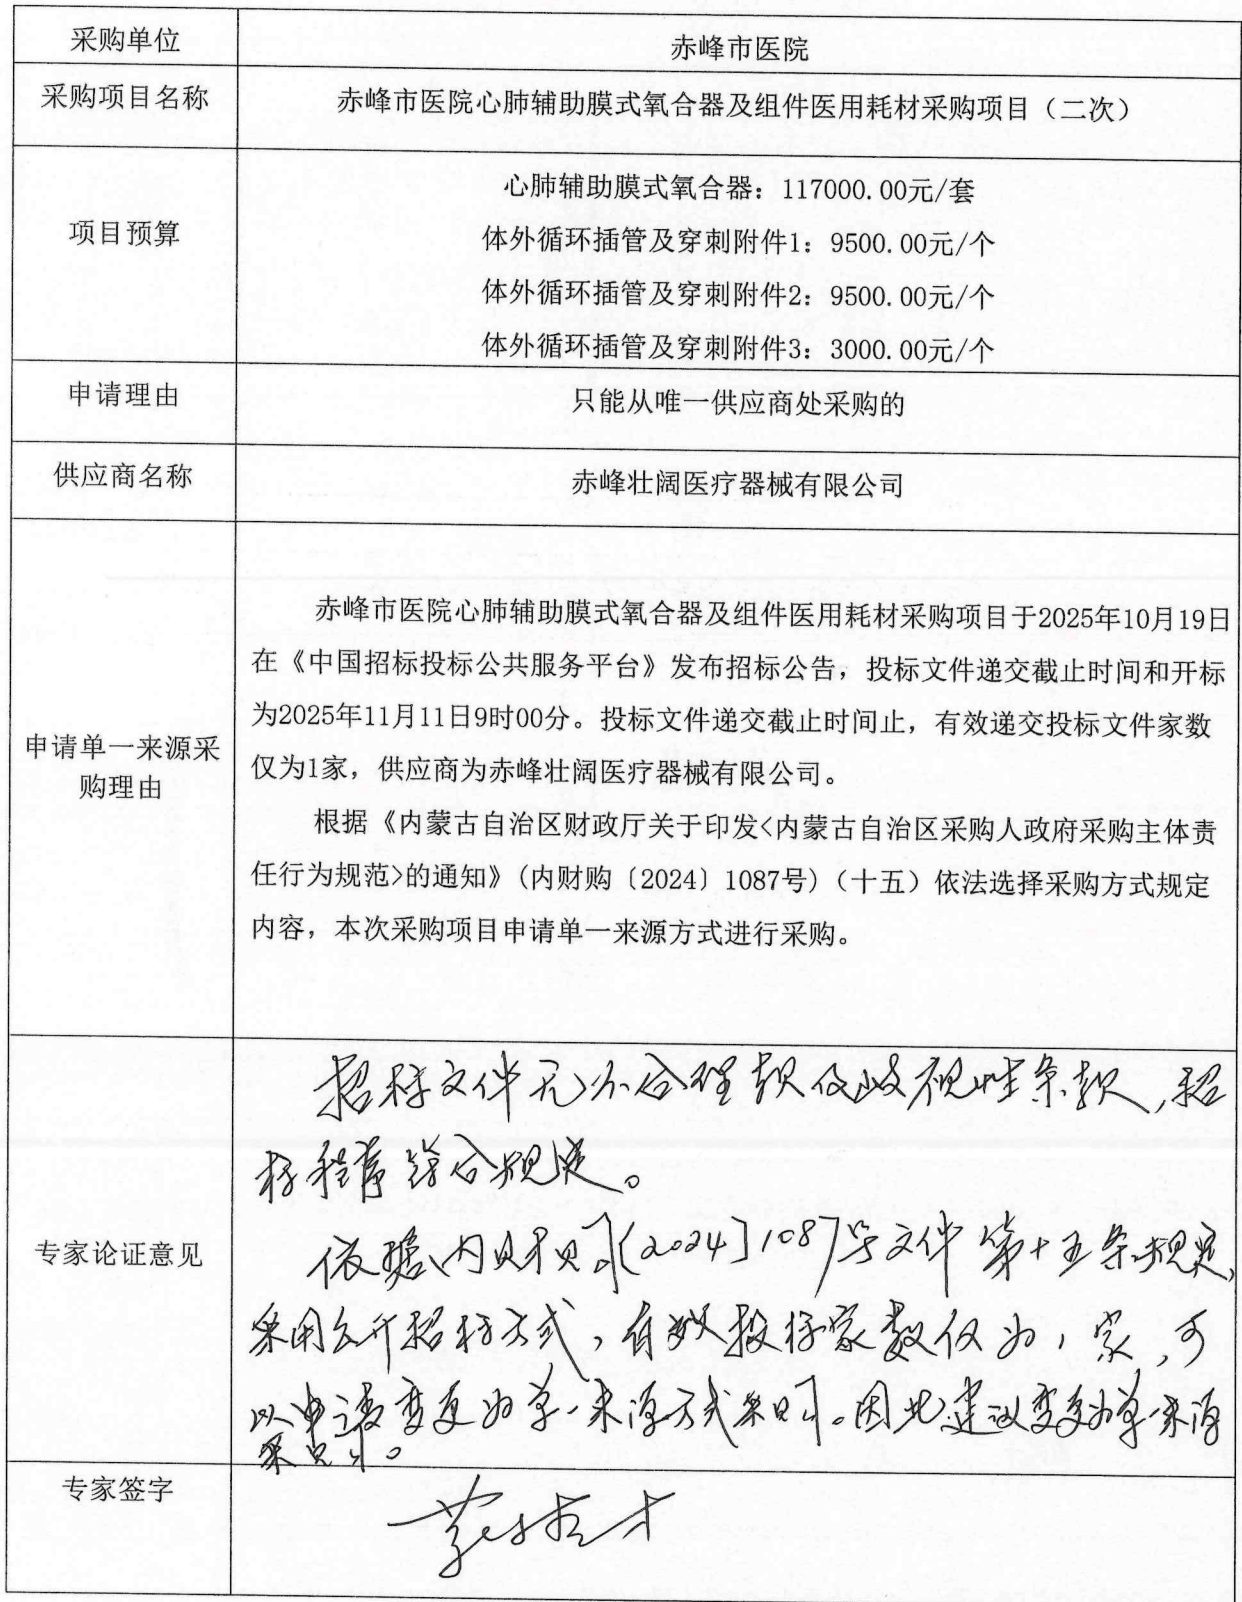 采购单位
赤峰市医院
采购项目名称
赤峰市医院心肺辅助膜式氧合器及组件医用耗材采购项目（二次）
项目预算
心肺辅助膜式氧合器：117000.00元/套
体外循环插管及穿刺附件1：9500.00元/个
体外循环插管及穿刺附件2：9500.00元/个
体外循环插管及穿刺附件3：3000.00元/个
申请理由
只能从唯一供应商处采购的
供应商名称
赤峰壮阔医疗器械有限公司
申请单一来源采
购理由
赤峰市医院心肺辅助膜式氧合器及组件医用耗材采购项目于2025年10月19日
在《中国招标投标公共服务平台》发布招标公告，投标文件递交截止时间和开标
为2025年11月11日9时00分。投标文件递交截止时间止，有效递交投标文件家数
仅为1家，供应商为赤峰壮阔医疗器械有限公司。
根据《内蒙古自治区财政厅关于印发<内蒙古自治区采购人政府采购主体责
任行为规范>的通知》(内财购〔2024〕1087号)（十五）依法选择采购方式规定
内容，本次采购项目申请单一来源方式进行采购。
专家论证意见
招标文件无不合理款及歧视性条款,招
标程序符合规定。
依据内财购[2024]1087号文件第十五条规定,
采用公开招标方式，有效投标家数仅为1家,可
以申请变更为单一来源方式采购。因此建议变更为单一来源
采购。
专家签字